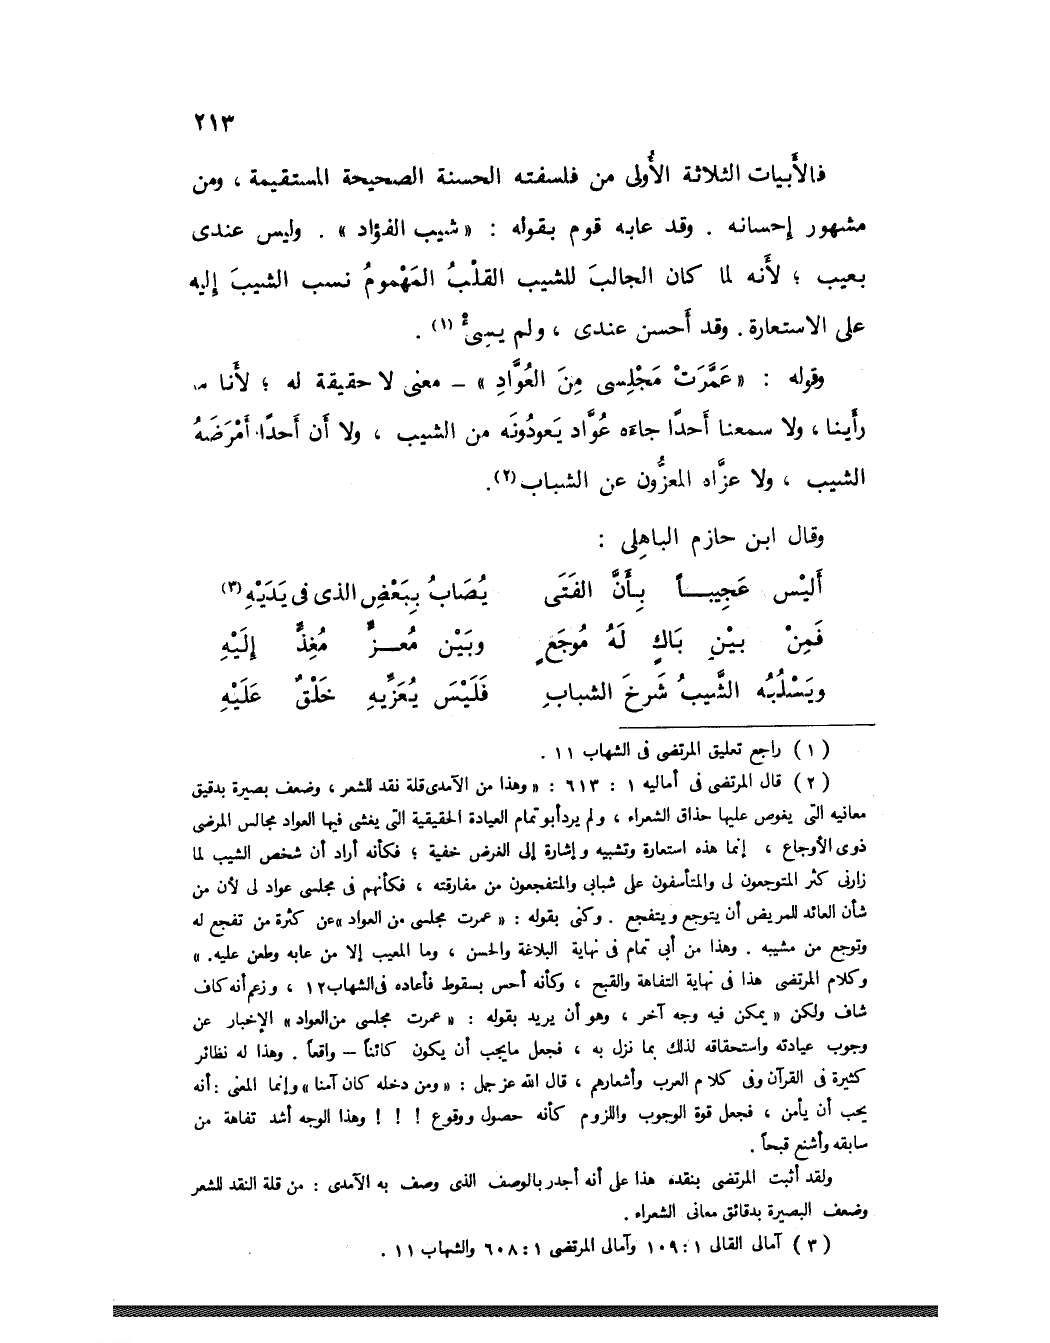 ٢١٣
فالأَبيات الثلاثة الأُولى من فلسفته الحسنة الصحيحة المستقيمة ، ومن
مشهور إحسانه . وقد عابه قوم بقوله : « شيب الفؤاد » . وليس عندى
بعيب ؛ لأَنه لما كان الجالبَ للشيب القلْبُ المَهْمومُ نسب الشيبَ إليه
على الاستعارة . وقد أَحسن عندى ، ولم يسِىءْ (١) .
وقوله : « عَمَّرَتْ مَجْلِسى مِنَ العُوَّادِ » – معنى لا حقيقة له ؛ لأَنا
رأَينا ، ولا سمعنا أَحدًا جاءَه عُوَّاد يَعودُونَه من الشيب ، ولا أَن أَحدًا أَمْرَضَهُ
الشيب ، ولا عزَّاه المعزُّون عن الشباب (٢) .
وقال ابن حازم الباهِلى :
أَلَيْس عَجِيباً بِأَنَّ الفَتَى يُصَابُ بِبَعْضِ الذى فى يَدَيْهِ (٣)
فَمِنْ بيْنِ بَاكٍ لَهُ مُوجَعٍ وبَيْن مُعزٍّ مُغِذٍّ إِلَيْهِ
ويَسْلُبُه الشَّيبُ شَرخَ الشبابِ فَلَيْسَ يُعَزِّيهِ خَلْقٌ عَلَيْهِ
( ١ ) راجع تعليق المرتضى فى الشهاب ١١ .
( ٢ ) قال المرتضى فى أماليه ١ : ٦١٣ : « وهذا من الآمدى قلة نقد للشعر ، وضعف بصيرة بدقيق
معانيه التى يغوص عليها حذاق الشعراء ، ولم يرد أبو تمام العيادة الحقيقية التى يغشى فيها العواد مجالس المرضى
ذوى الأوجاع ، إنما هذه استعارة وتشبيه وإشارة إلى الغرض خفية ؛ فكأنه أراد أن شخص الشيب لما
زارنى كثر المتوجعون لى والمتأسفون على شبابى والمتفجعون من مفارقته ، فكأنهم فى مجلسى عواد لى لأن من
شأن العائد للمريض أن يتوجع ويتفجع . وكنى بقوله : « عمرت مجلسى من العواد » عن كثرة من تفجع له
وتوجع من مشيبه . وهذا من أبى تمام فى نهاية البلاغة والحسن ، وما المعيب إلا من عابه وطعن عليه . »
وكلام المرتضى هذا فى نهاية التفاهة والقبح ، وكأنه أحس بسقوط فأعاده فى الشهاب ١٢ ، وزعم أنه كاف
شاف ولكن « يمكن فيه وجه آخر ، وهو أن يريد بقوله : « عمرت مجلسى من العواد » الإخبار عن
وجوب عيادته واستحقاقه لذلك بما نزل به ، فجعل ما يجب أن يكون كائناً – واقعاً . وهذا له نظائر
كثيرة فى القرآن وفى كلام العرب وأشعارهم ، قال الله عز جل : « ومن دخله كان آمنا » وإنما المعنى : أنه
يجب أن يأمن ، فجعل قوة الوجوب واللزوم كأنه حصول ووقوع ! ! ! وهذا الوجه أشد تفاهة من
سابقه وأشنع قبحاً .
ولقد أثبت المرتضى بنقده هذا على أنه أجدر بالوصف الذى وصف به الآمدى : من قلة النقد للشعر
وضعف البصيرة بدقائق معانى الشعراء .
( ٣ ) آمالى القالى ١ : ١٠٩ وآمالى المرتضى ١ : ٦٠٨ والشهاب ١١ .